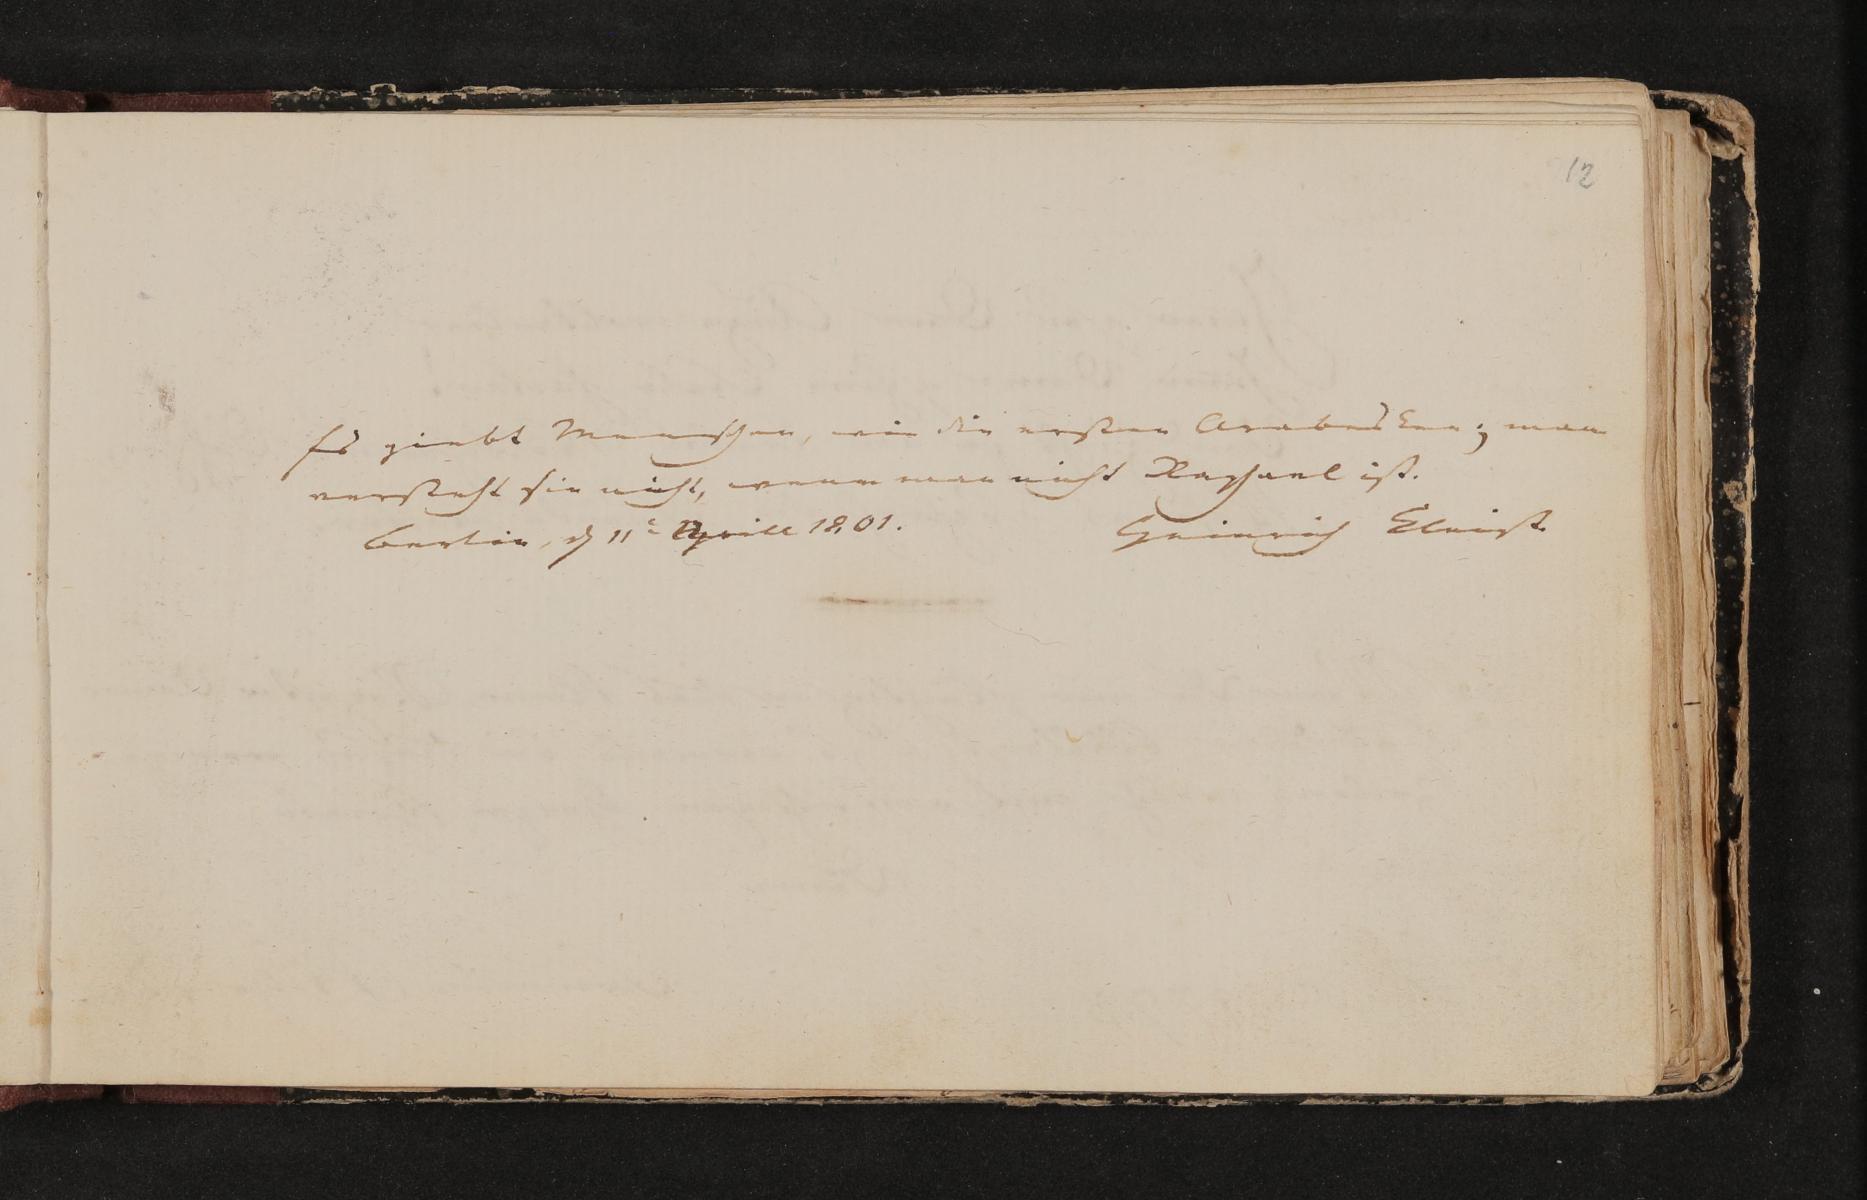 12
Es giebt Menschen, wie die ersten Arabesken; man
versteht sie nicht, wenn man nicht Raphael ist.
Berlin, d 11t April 1801.
Heinrich Kleist